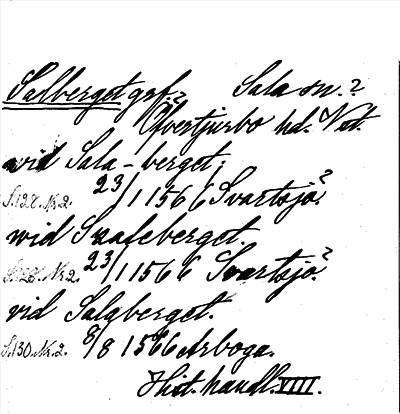 Salberget gsf.? Sala sn.?
Öfvertjurbo hd. Vst.
wid Sala-berget:
S.128. N:r 2. 23/1 1566 Svartsjö.?
wid Saaleberget.
S.128. N:r 2. 23/1 1566 Svartsjö.?
vid Salgberget.
S.130. N:r 2. 8/8 1566 Arboga.
Hist. handl. XIII.